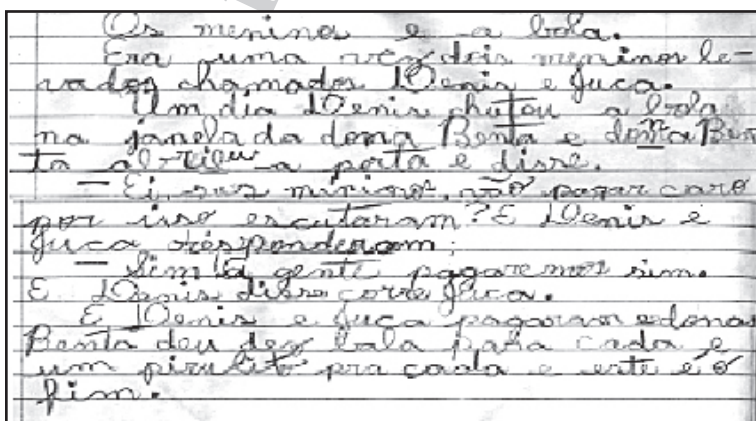 Os meninos e a bola.
Era uma vez dois meninos le-
vados chamados Denis e Juca.
Um dia Denis chutou a bola
na janela da dona Benta e donta Ben
ta abriu a porta e disse.
– Ei, seus mininos, vão pagar caro
por isso escutaram? E Denis e
Juca responderam:
– Sim a gente pagaremos sim.
E Denis disse corre Juca.
E Denis e Juca pagaram e dona
Benta deu dez bala para cada e
um pirulito pra cada e este é o
fim.